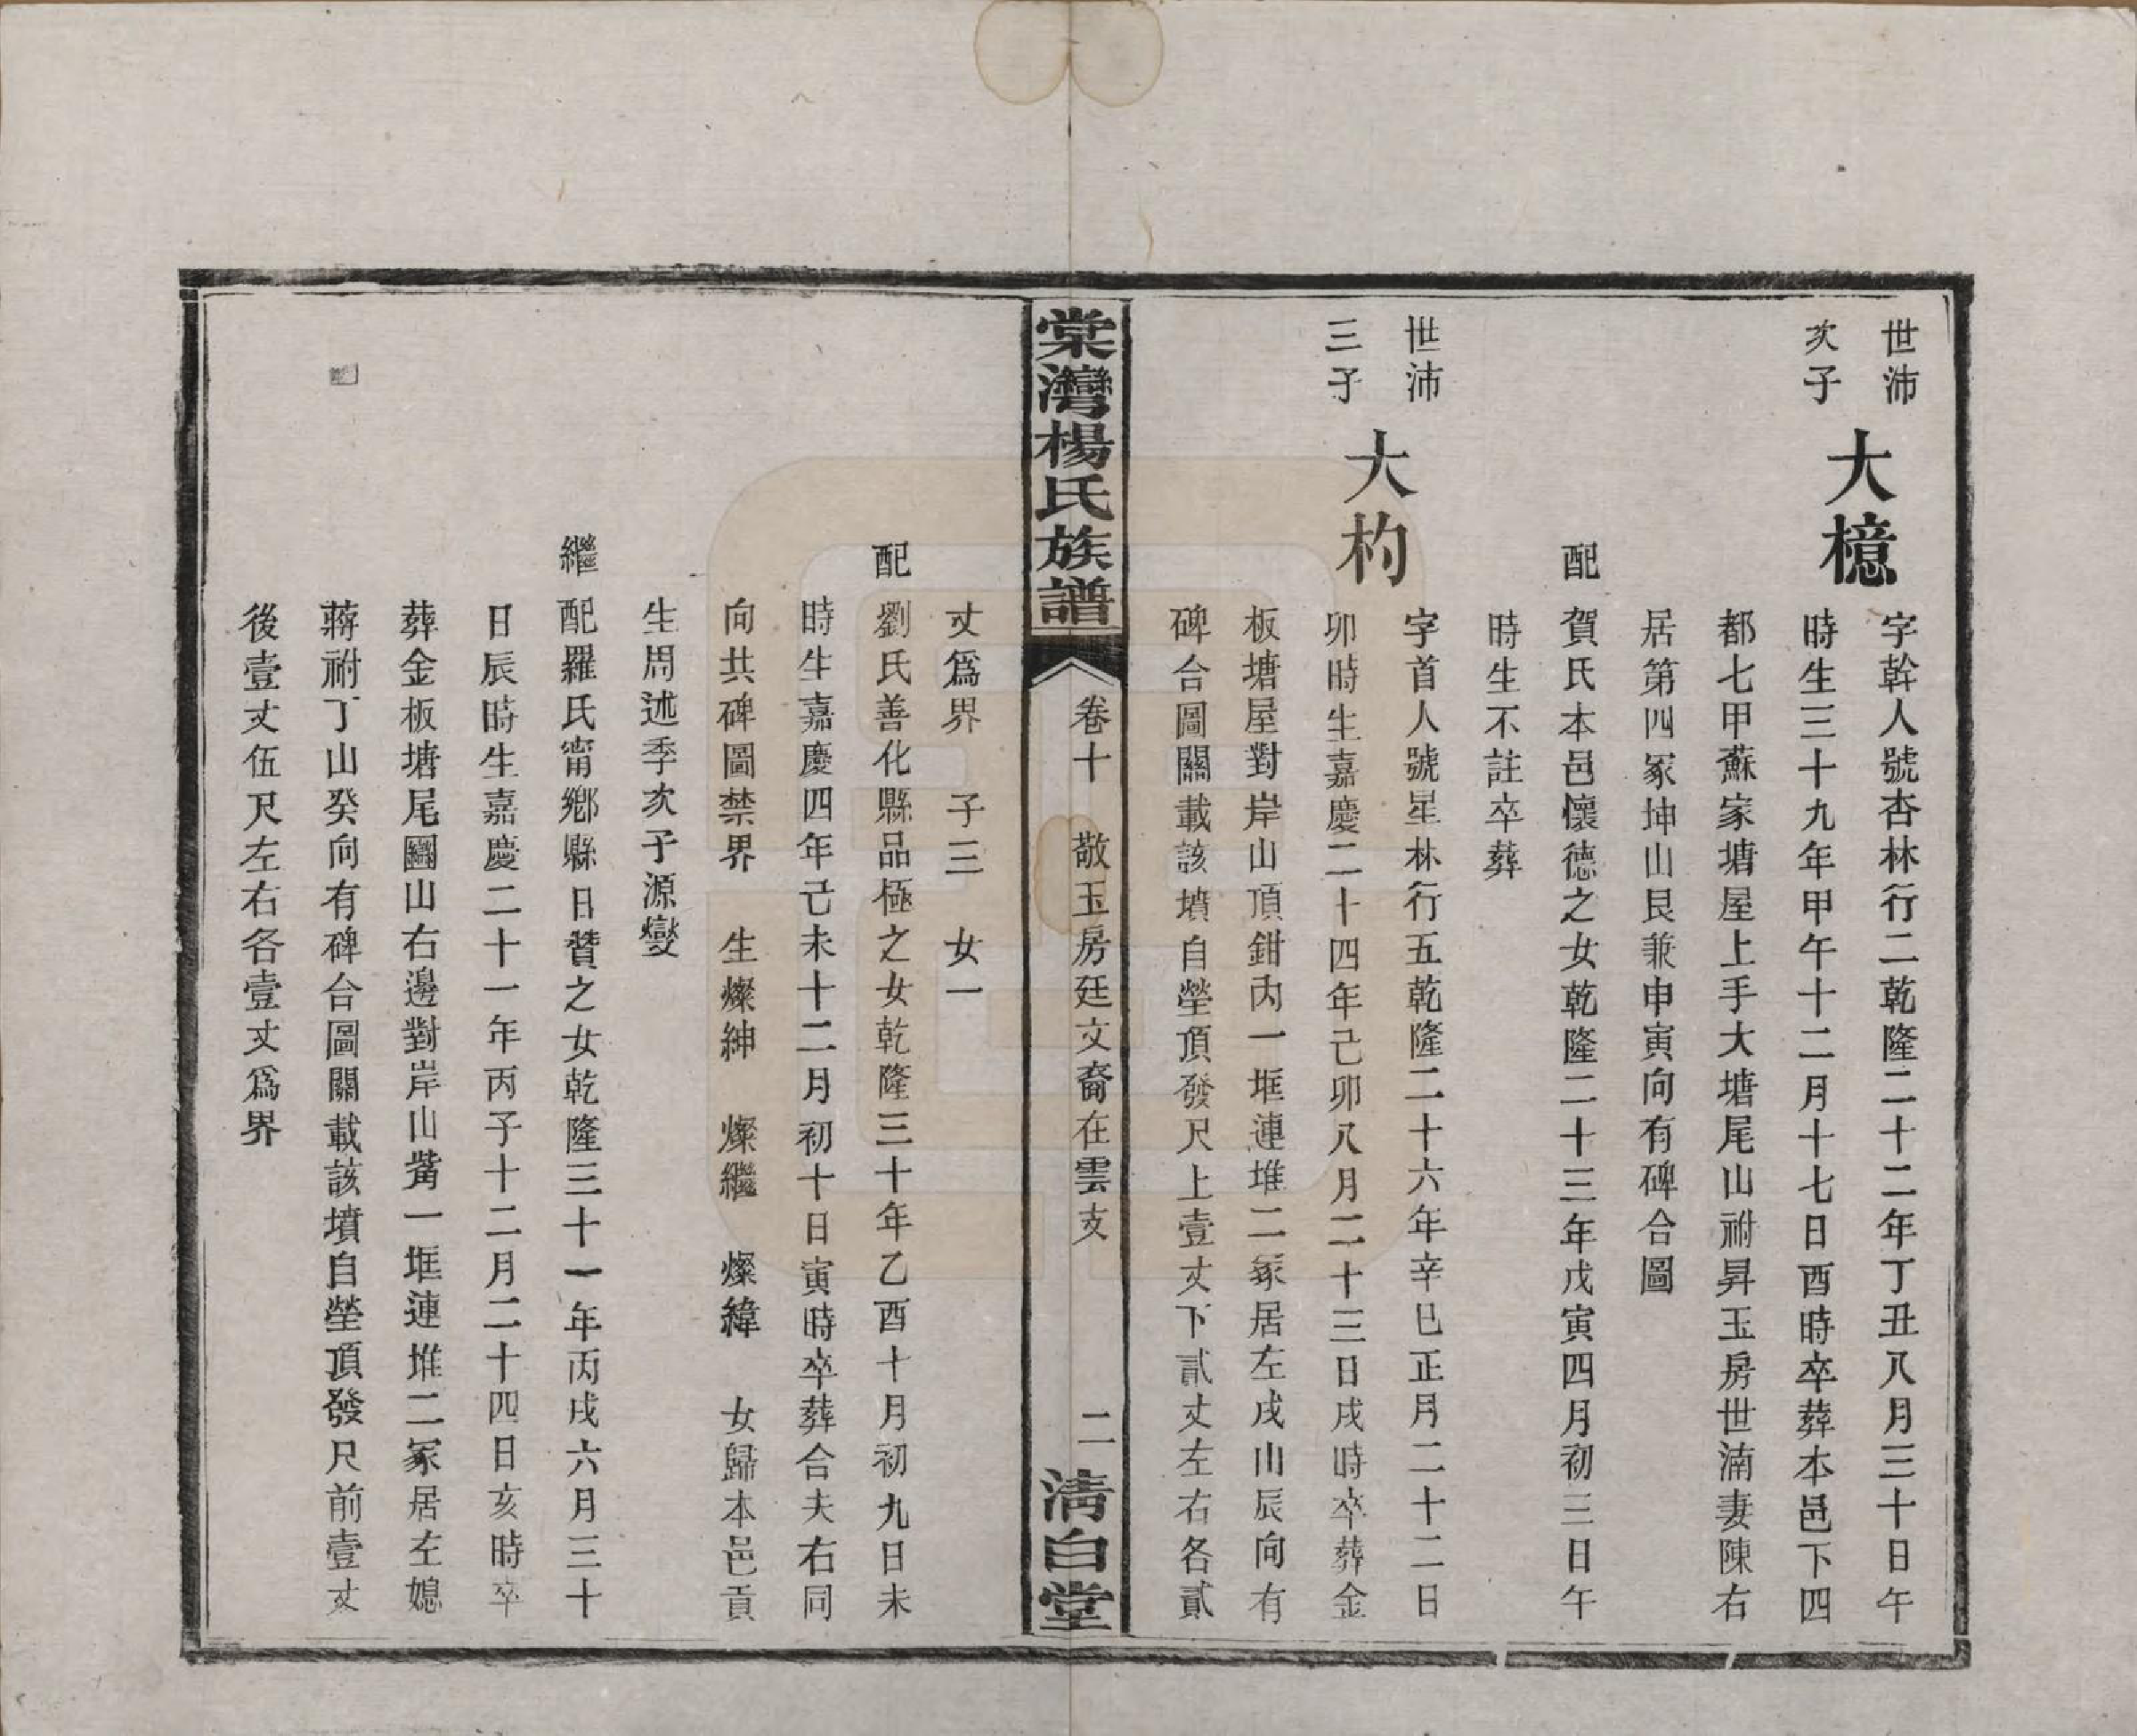 世沛
次子
大檍
字幹人號杏林行二乾隆二十二年丁丑八月三十日午
時生三十九年甲午十二月十七日酉時卒葬本邑下四
都七甲蘇家塘屋上手大塘尾山祔昇玉房世湳妻陳右
居第四冢坤山艮兼申寅向有碑合圖
配賀氏本邑懷德之女乾隆二十三年戊寅四月初三日午
時生不註卒葬
世沛
三子
大杓
字首人號星林行五乾隆二十六年辛巳正月二十二日
卯時生嘉慶二十四年己卯八月二十三日戌時卒葬金
板塘屋對岸山頂鉗內一堆連堆二冢居左戌山辰向有
碑合圖關載該墳自塋頂發尺上壹丈下貳丈左右各貳
棠灣楊氏族譜
卷十 敬玉房廷文裔在雲支
二
清白堂
丈爲界 子三 女一
配劉氏善化縣品極之女乾隆三十年乙酉十月初九日未
時生嘉慶四年己未十二月初十日寅時卒葬合夫右同
向共碑圖禁界 生燦紳 燦繼 燦緯 女歸本邑貢
生周述季次子源燮
繼配羅氏甯鄉縣日贊之女乾隆三十一年丙戌六月三十
日辰時生嘉慶二十一年丙子十二月二十四日亥時卒
葬金板塘尾圝山右邊對岸山觜一堆連堆二冢居左媳
蔣祔丁山癸向有碑合圖關載該墳自塋頂發尺前壹丈
後壹丈伍尺左右各壹丈爲界